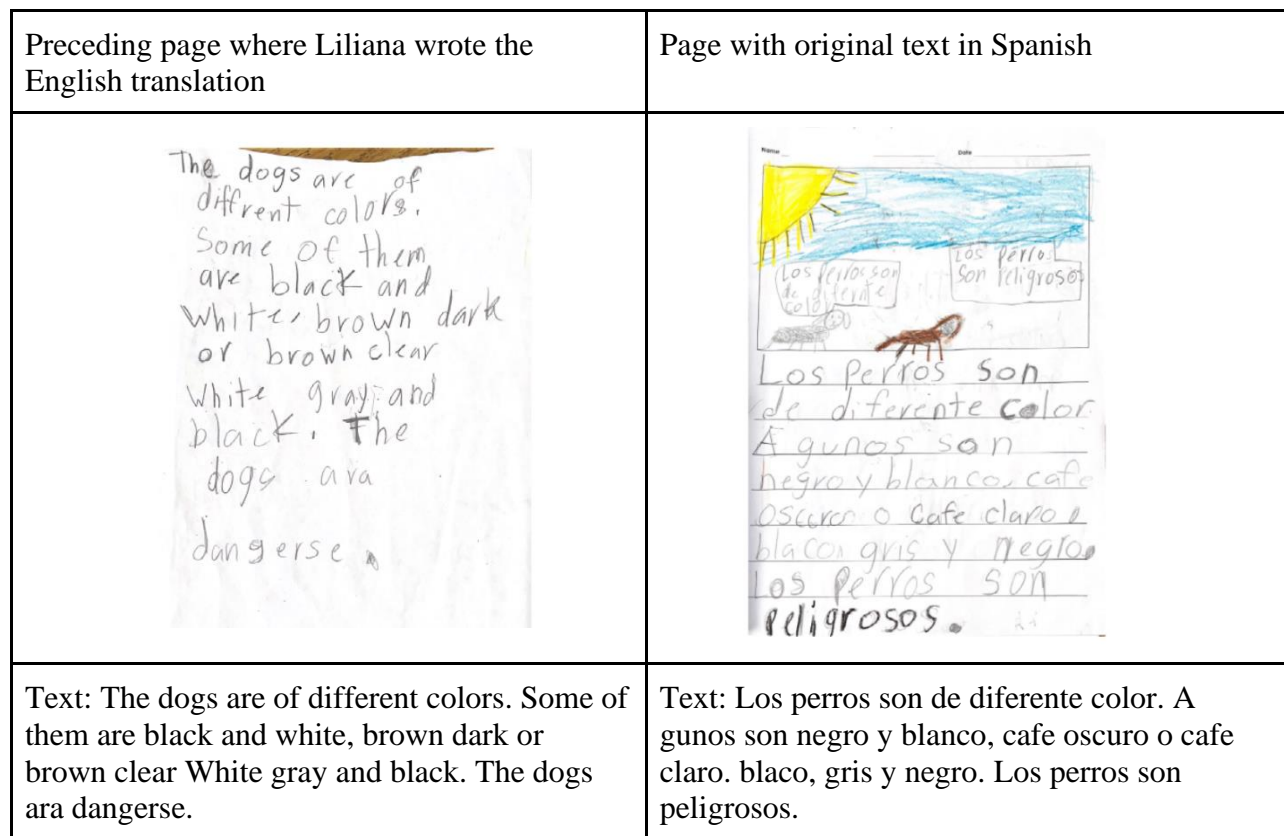 Preceding page where Liliana wrote the
English translation
Page with original text in Spanish
The dogs are of
diffrent colors.
Some of them
are black and
white, brown dark
or brown clear
white gray and
black. The
dogs ara
dangerse.
Name
Date
Los perros son
de diferente
color
Los perros
son peligroso
Los perros son
de diferente color.
A gunos son
negro y blanco, cafe
oscuro o cafe claro
blaco, gris y negro.
Los perros son
peligrosos.
Text: The dogs are of different colors. Some of
them are black and white, brown dark or
brown clear White gray and black. The dogs
ara dangerse.
Text: Los perros son de diferente color. A
gunos son negro y blanco, cafe oscuro o cafe
claro. blaco, gris y negro. Los perros son
peligrosos.